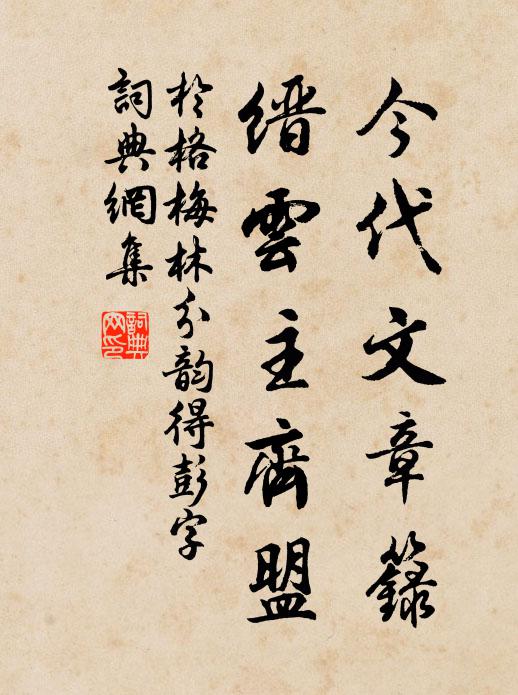 今代文章籙
缙雲主齊盟
於格梅林分韵得彭字
詞典網集
詞典網印